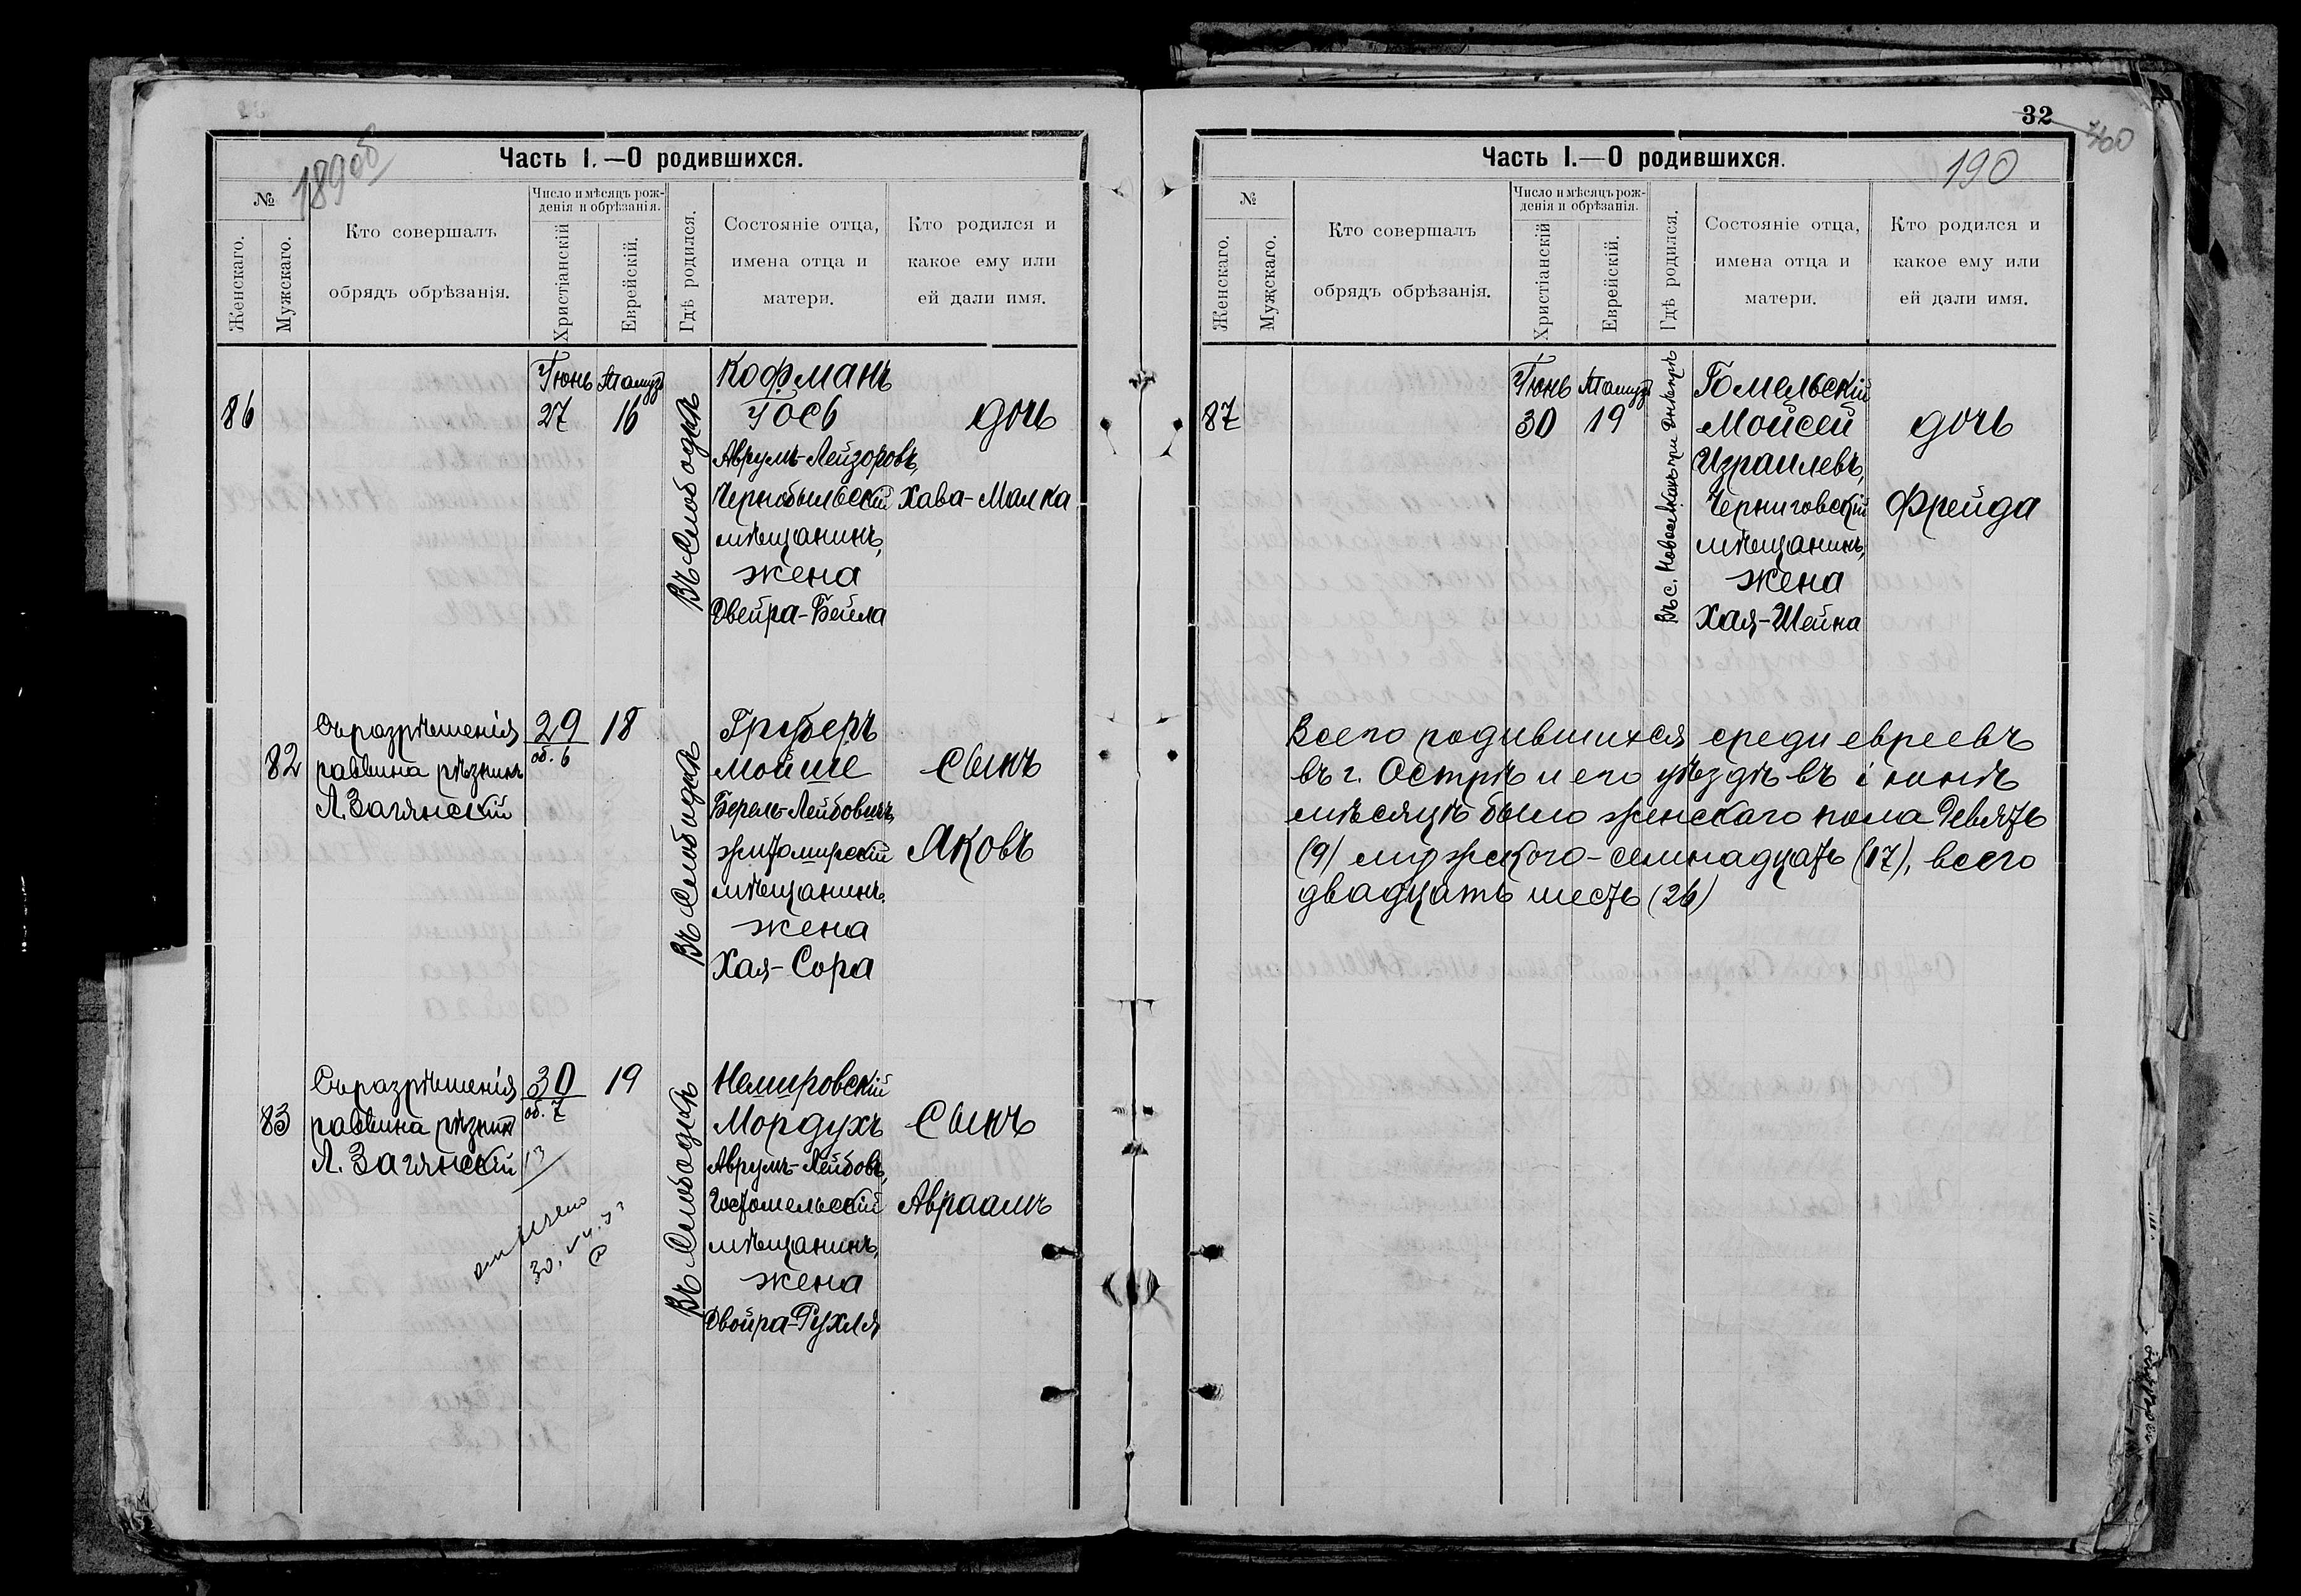 189об
Часть I.—О родившихся.
№
Женскаго.
Мужскаго.
Кто совершалъ
обрядъ обрѣзанія.
Число и мѣсяцъ рож-
денія и обрѣзанія.
Христіанскій
Еврейскій.
Гдѣ родился.
Состояніе отца,
имена отца и
матери.
Кто родился и
какое ему или
ей дали имя.
86
Іюнь Тамузъ
27 16
Въ Слободкѣ
Кофманъ
Іось
Аврумъ-Лейзоровъ,
Чернобыльскій
мѣщанинъ,
жена
Двейра-Бейла
дочь
Хава-Малка
82
Съ разрѣшенія
раввина рѣзникъ
Л. Загянскій
29 18
об. 6
Въ Слободкѣ
Груберъ
Мойше
Берель-Лейбовичъ,
житомирскій
мѣщанинъ,
жена
Хая-Сора
сынъ
Яковъ
83
Съ разрѣшенія
раввина рѣзникъ
Л. Загянскій
30 19
об. 7
Въ Слободкѣ
Немировскій
Мордухъ
Аврумъ-Лейбовъ,
Гостомельскій
мѣщанинъ,
жена
Двойра-Рухля
сынъ
Авраамъ
32
190
Часть I.—О родившихся.
№
Женскаго.
Мужскаго.
Кто совершалъ
обрядъ обрѣзанія.
Число и мѣсяцъ рож-
денія и обрѣзанія.
Христіанскій
Еврейскій.
Гдѣ родился.
Состояніе отца,
имена отца и
матери.
Кто родился и
какое ему или
ей дали имя.
87
Іюнь Тамузъ
30 19
Въ с. при Днѣпрѣ
Гомельскій
Мойсей
Израилевъ,
Черниговскій
мѣщанинъ,
жена
Хая-Шейна
дочь
Фрейда
Всего родившихся среди евреевъ
въ г. Острѣ и его уѣздѣ въ іюнѣ
мѣсяцѣ было женскаго пола девять
(9) мужского-семнадцать (17), всего
двадцать шесть (26)